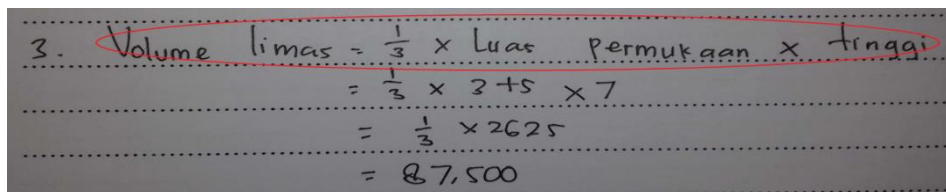 3. Volume limas = 1/3 × Luas permukaan × tinggi
= 1/3 × 375 × 7
= 1/3 × 2625
= 87.500